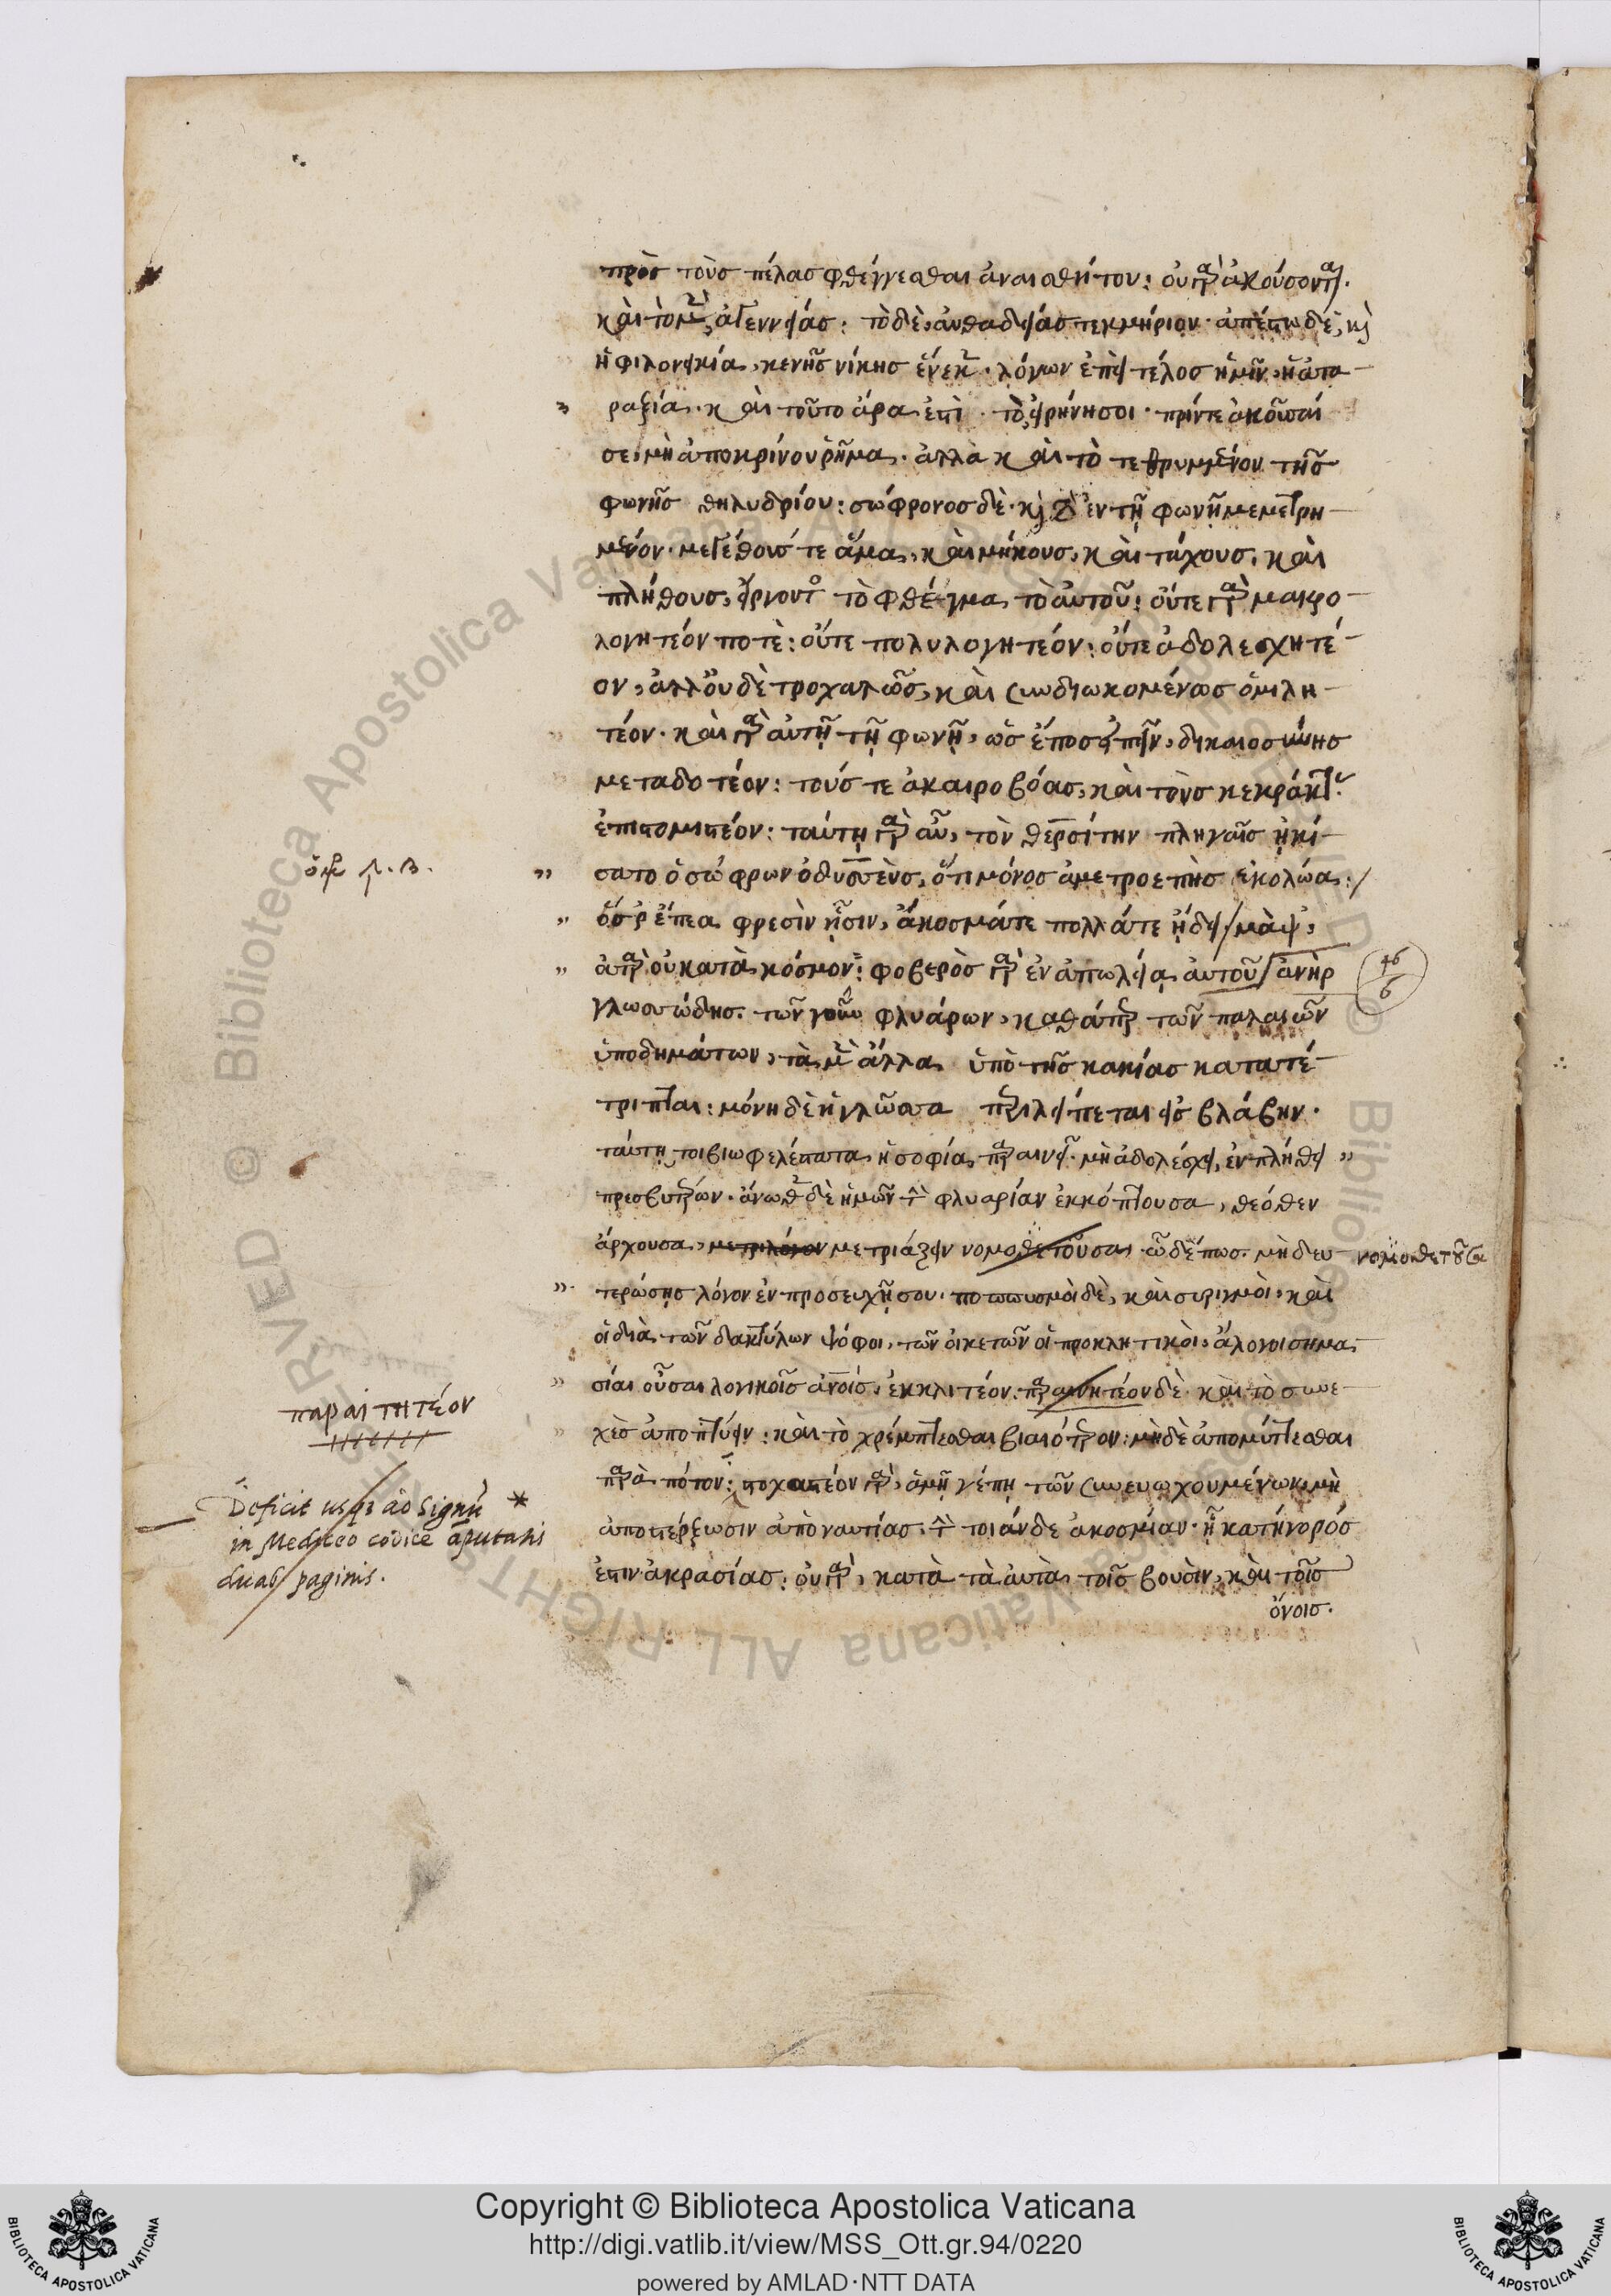 πρὸς τοὺς πέλας φθέγγεσθαι ἀναισθήτου: οὐ γὰρ ἀκούσονται.
καὶ τὸ μὲν, ἀγεννείας: τὸ δὲ, αὐθαδείας τεκμήριον. ἀπέστω δὲ, καὶ
ἡ φιλονεικία, κενῆς νίκης ἕνεκεν. λόγων ἐπεὶ τέλος ἡμῖν, ἡ ἀτα
ραξία. καὶ τοῦτο ἄρα ἐστὶ. τὸ, εἰρήνη σοι. πρίν τε ἀκοῦσαί
σε, μὴ ἀποκρίνου ῥῆμα. ἀλλὰ καὶ τὸ τεθρυμμένον τῆς
φωνῆς θηλυδρίου: σώφρονος δὲ. καὶ τὸ ἐν τῇ φωνῇ μεμετρη
μένον. μεγέθους τε ἅμα, καὶ μήκους, καὶ τάχους, καὶ
πλήθους, εἴργοντος τὸ φθέγμα τὸ αὐτοῦ: οὔτε γὰρ μακρο
λογητέον ποτὲ: οὔτε πολυλογητέον: οὔτε ἀδολεσχητέ
ον, ἀλλ' οὐδὲ τροχαλῶς, καὶ συνδιωκομένως ὁμιλη
τέον. καὶ γὰρ αὐτῇ τῇ φωνῇ, ὡς ἔπος εἰπεῖν, δικαιοσύνης
μεταδοτέον: τούς τε ἀκαιροβόας, καὶ τοὺς κεκράκτας
ἐπιστομιστέον: ταύτῃ γὰρ αὖ, τὸν θερσίτην πληγαῖς ᾐκί
σατο ὁ σώφρων ὀδυσσεὺς, ὅτι μόνος ἀμετροεπὴς ἐκολώα:
ὅς ῥ' ἔπεα φρεσὶν ᾗσιν, ἄκοσμά τε πολλά τε ᾔδει, μὰψ,
ἀτὰρ οὐ κατὰ κόσμον: φοβερὸς γὰρ ἐν ἀπωλείᾳ αὐτοῦ ἀνὴρ
γλωσσώδης. τῶν γοῦν φλυάρων, καθάπερ τῶν παλαιῶν
ὑποδημάτων, τὰ μὲν ἄλλα ὑπὸ τῆς κακίας κατατέ
τριπται: μόνη δὲ ἡ γλῶσσα περιλείπεται εἰς βλάβην.
ταύτῃ τοι βιωφελέστατα ἡ σοφία παραινεῖ. μὴ ἀδολέσχει, ἐν πλήθει
πρεσβυτέρων. ἄνωθεν δὲ ἡμῶν τὴν φλυαρίαν ἐκκόπτουσα, θεόθεν
ἄρχουσα, μετριάζειν νομοθετοῦσα ὧδέ πως. μὴ δευ
νομοθετοῦσα
τερώσῃς λόγον ἐν προσευχῇ σου. ποππυσμοὶ δὲ, καὶ συριγμοὶ, καὶ
οἱ διὰ τῶν δακτύλων ψόφοι, τῶν οἰκετῶν οἱ προκλητικοὶ, ἄλογοι σημα
σίαι οὖσαι λογικοῖς ἀνοις, ἐκκλιτέον. παραιτητέον δὲ καὶ τὸ συνε
παραιτητέον
χὲς ἀποπτύειν: καὶ τὸ χρέμπτεσθαι βιαιότερον: μὴ δὲ ἀπομύττεσθαι
παρὰ πότον: στοχαστέον γὰρ, ἁμῇ γέ πῃ τῶν συνευωχουμένων, μὴ
ἀποστέρξωσιν ἀπὸ ναυτίας τὴν τοιάνδε ἀκοσμίαν. ἣ κατήγορός
ἐστιν ἀκρασίας: οὐ γὰρ, κατὰ τὰ αὐτὰ τοῖς βουσὶν, καὶ τοῖς
ὄνοις.
46
6
Deficit usque ad signū *
in Mediceo codice āputatis
duab. paginis.
Copyright © Biblioteca Apostolica Vaticana
http://digi.vatlib.it/view/MSS_Ott.gr.94/0220
powered by AMLAD·NTT DATA
BIBLIOTECA APOSTOLICA VATICANA
BIBLIOTECA APOSTOLICA VATICANA